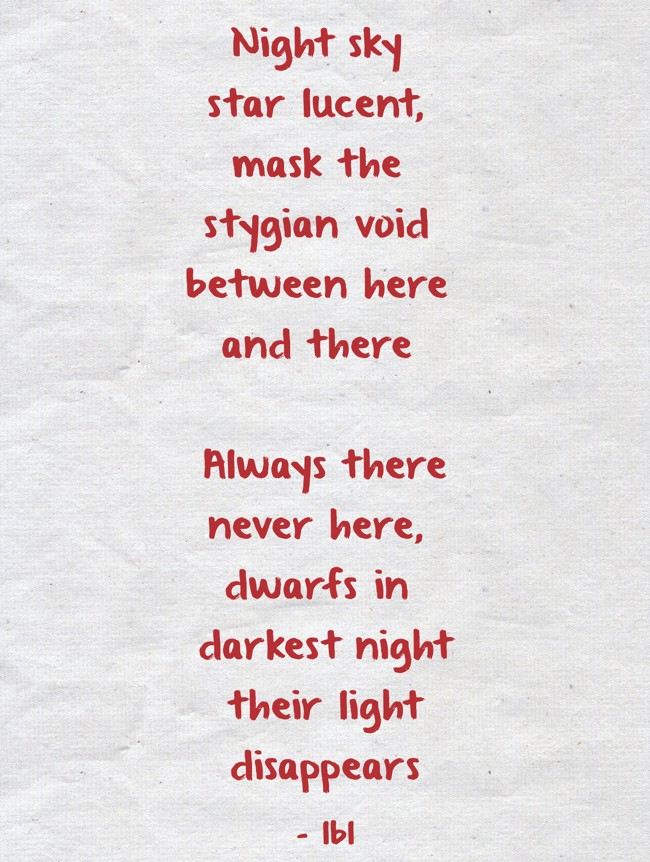 Night sky
star lucent,
mask the
stygian void
between here
and there
Always there
never here,
dwarfs in
darkest night
their light
disappears
- lbl